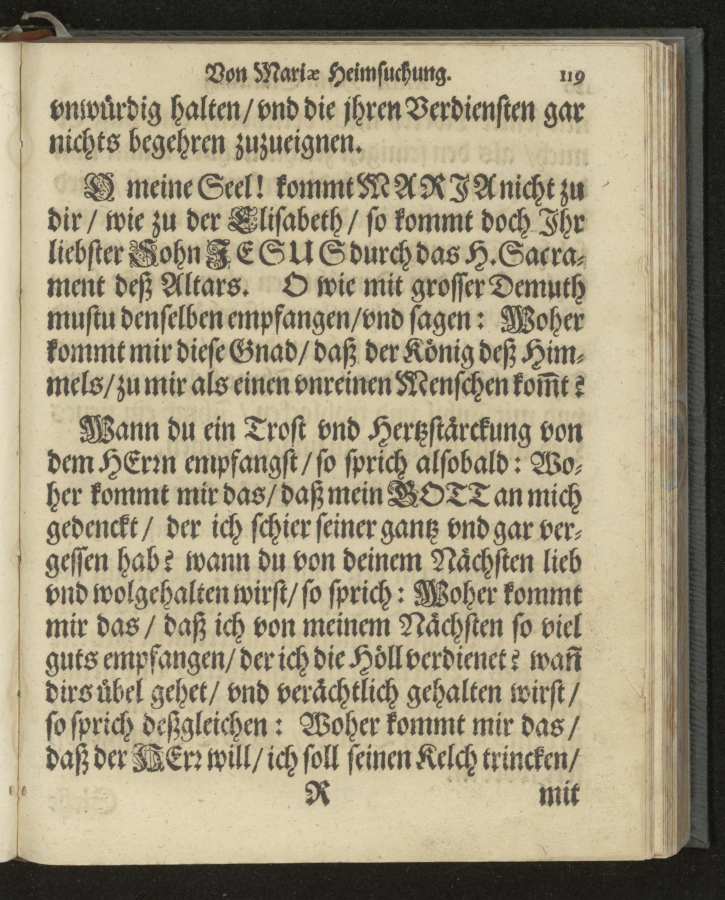 Von Mariæ Heimsuchung. 119
vnwürdig halten/ vnd die jhren Verdiensten gar
nichts begehren zuzueignen.
O meine Seel! kommt MARJA nicht zu
dir / wie zu der Elisabeth / so kommt doch Jhr
liebster Sohn JESUS durch das H. Sacra-
ment deß Altars. O wie mit grosser Demuth
mustu denselben empfangen/vnd sagen: Woher
kommt mir diese Gnad/ daß der König deß Him-
mels/ zu mir als einen vnreinen Menschen kom̄t?
Wann du ein Trost vnd Hertzstärckung von
dem HErrn empfangst/ so sprich alsobald: Wo-
her kommt mir das/ daß mein GOTT an mich
gedenckt / der ich schier seiner gantz vnd gar ver-
gessen hab? wann du von deinem Nächsten lieb
vnd wolgehalten wirst/ so sprich: Woher kommt
mir das / daß ich von meinem Nächsten so viel
guts empfangen/ der ich die Höll verdienet? wan̄
dirs übel gehet/ vnd verächtlich gehalten wirst /
so sprich deßgleichen: Woher kommt mir das /
daß der HErr will/ ich soll seinen Kelch trincken/
R mit